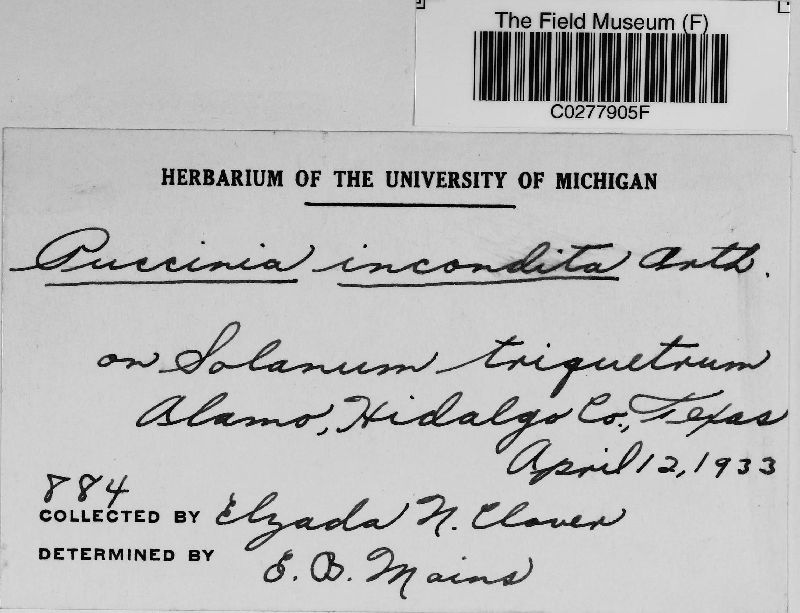 The Field Museum (F)
C0277905F
HERBARIUM OF THE UNIVERSITY OF MICHIGAN
Puccinia incondita Arth.
on Solanum triquetrum
Alamo, Hidalgo Co., Texas
April 12, 1933
884
COLLECTED BY Elzada N. Clover
DETERMINED BY E. B. Mains